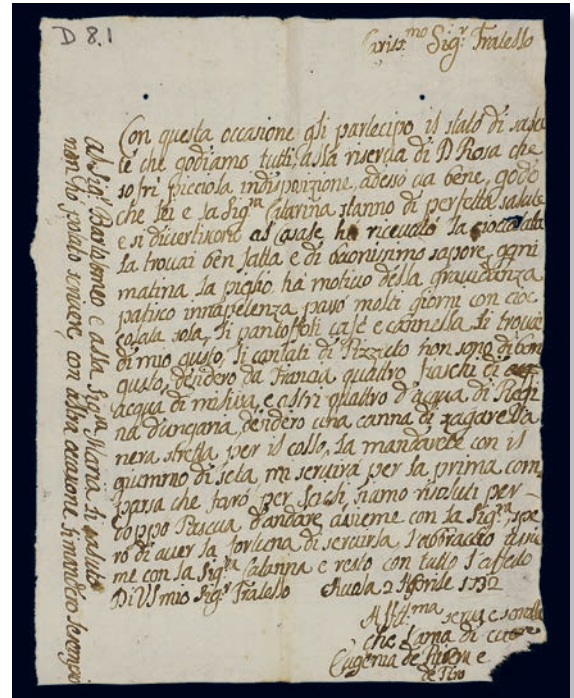 D 8.1
Cariss.mo Sig.r Fratello
Con questa occasione gli partecipo il stato di salu
te che godiamo tutti, alla riserva di D Rosa che
sofrì picciola indisposizione, adesso va bene, godo
che lei e la Sig.ra Catarina stanno di perfetta salute
e si divertiscono al Casale ho ricevuto la cioccolata
la trovai ben fatta e di buonissimo sapore, ogni
matina la piglio, ha motivo della gravidanza
patisco innapetenza, passo molti giorni con cioc
colata sola, li pantoffoli café e cannella li trovai
di mio gusto, li cantati di Pizzuto non sono di bon
gusto, desidero da Francia quattro fiaschi di
acqua di melissa e altri quattro d'acqua di Regi
na d'ungaria, desidero una canna di zagarella
nera stretta per il collo, la mandarete con il
giummo di seta, mi servirà per la prima com
parsa che farò per siamo risoluti per
doppo Pascua d'andare assieme con la Sig.ra, spe
ro di aver la fortuna di servirla, l'abbraccio assie
me con la Sig.ra Catarina e resto con tutto l'affetto
Di VS mio Sig.r Fratello Avola 2 Aprile 1792
Aff.ma serva e sorella
che l'ama di cuore
Eugenia de
al Sig.r Bartolomeo e alla Sig.ra Maria li saluto
non ho potuto scrivere, con altra occasione li mandero